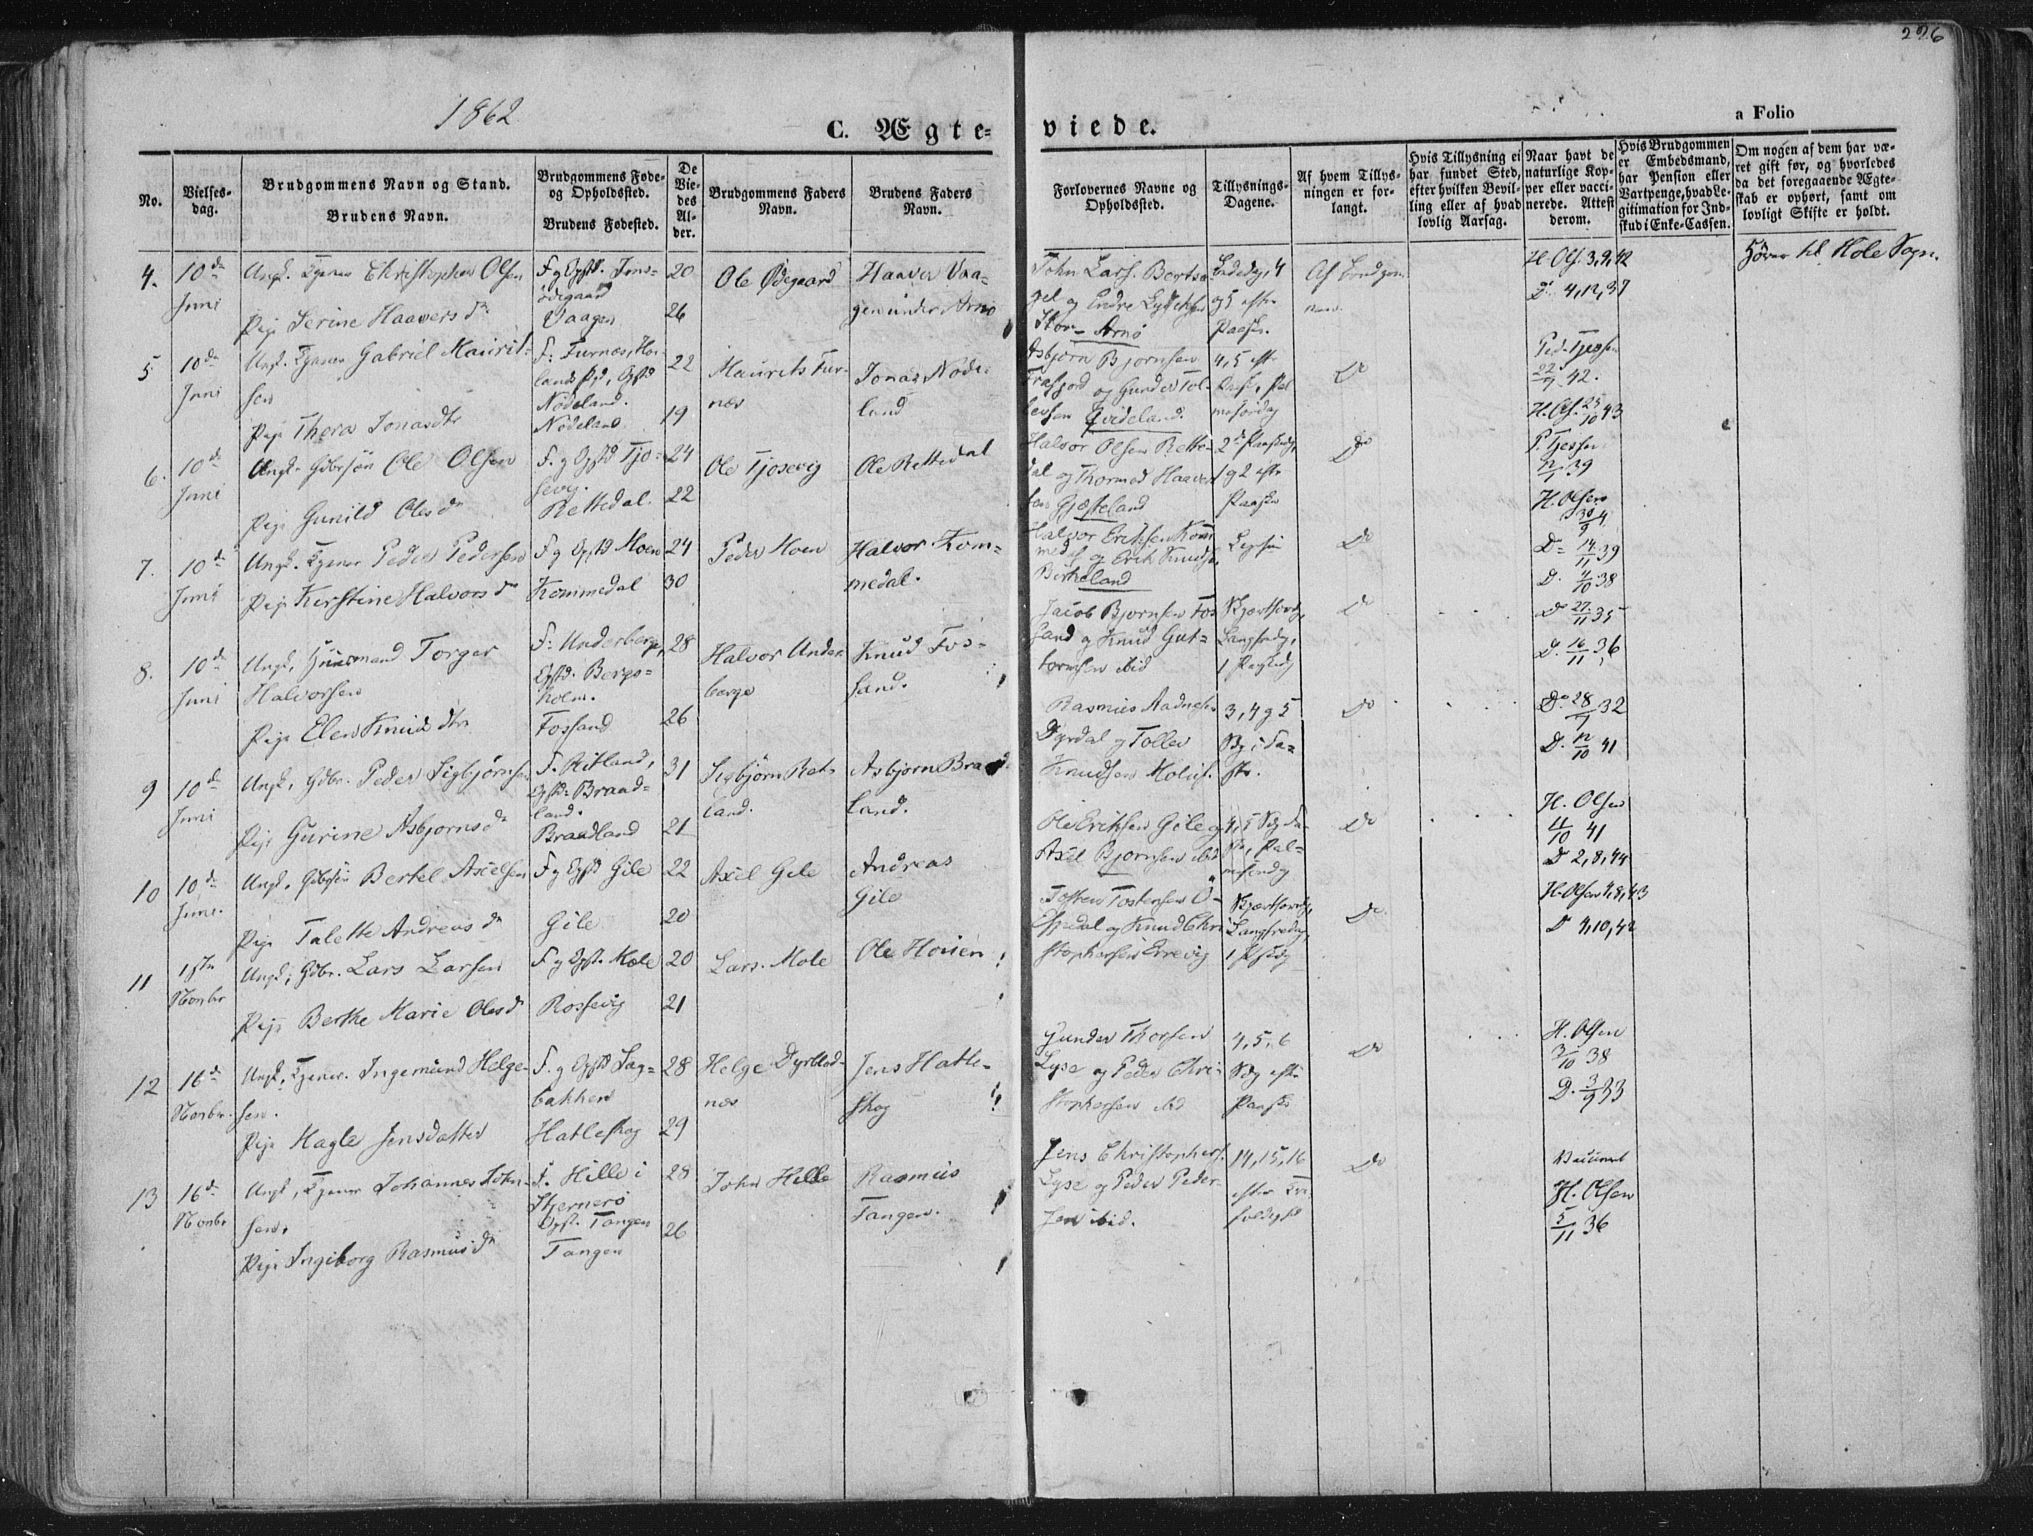 226
1862
C. Ægte-
viede.
a Folio
No.
Vielses-
dag.
Brudgommens Navn og Stand.
Brudens Navn.
Brudgommens Føde-
og Opholdssted.
Brudens Fødested.
De
Vie-
des
Al-
der.
Brudgommens Faders
Navn.
Brudens Faders
Navn.
Forlovernes Navne og
Opholdssted.
Tillysnings-
Dagene.
Af hvem Tillys-
ningen er for-
langt.
Hvis Tillysning ei
har fundet Sted,
efter hvilken Bevil-
ling eller af hvad
lovlig Aarsag.
Naar havt de
naturlige Kop-
per eller vacci-
nerede. Attest
derom.
Hvis Brudgommen
er Embedsmand,
har Pension eller
Vartpenge, hvad Le-
gitimation for Ind-
skud i Enke-Cassen.
Om nogen af dem har væ-
ret gift før, og hvorledes
da det foregaaende Ægte-
skab er ophørt, samt om
lovligt Skifte er holdt.
4. 10de Juni
Ungk. Tjener Christopher Olsen
Pige Serine Haaversdr
Vaagen
20
26
Ole Ødegaard
Haaver Vaa-
gen under Arnø
Stor-Arnø
Paaske.
H Ols. 3,9,42
Do 4,12,37
Hører til Hole Sogn.
5 10de Juni
Ungk. Tjener Gabriel Maurit-
sen
Pige Thora Jonasdtr
F: Furnæs, Hös-
lands Pgd, Opst
Nödeland.
Nödeland
22
19
Maurits Fur-
næs
Jonas Nöde-
land
Asbjørn Bjørnsen
Frafjord og Gunder Tol-
levsen Qvideland.
4,5 eft
Do
Ped. Tjessen
22/9 42.
H. Ols. 25/10 43
6. 10de Juni
Ungk. Gdbrsøn Ole Olsen
Pige Gunild Olesdr
F. og Opst Tjo-
sevig.
Rettedal.
24
22
Ole Tjosevig
Ole Rettedal
Halvor Olsen Rette-
dal og Thormod Haaver
sen Gjesteland
1 og 2 eftr
Paaske
Do
P. Tjessen
39
H. Olsen
30/9 4
7. 10de Juni
Ungk. Tjener Peder Pedersen
Pige Kirstine Halvorsdr
F og Opst Moen
Kommedal
24
30
Peder Moen
Halvor Kom-
medal.
Halvor Eriksen Kom
medal og Erik Knuds.
Birkeland
Do
Do 14/11 39
D. 4/10 38
8. 10de Juni
Ungk. Huusmand Torger
Halvorsen
Pige Elen Knudsdtr
F: Underberge,
Opst. Bergs-
holm.
Fossand
28
26
Halvor Under
berge
Knud Fos-
sand.
Jacob Bjørnsen Fos
sand og Knud Gut-
tormsen ibid
Skjærtorsdg,
Langfredg,
Do
Do 27/11 35
D. 16/11 36
9 10de Juni
Ungk. Gdbr. Peder Sigbjørnsen
Pige Gurine Asbjørnsdr
F. Ritland,
Opst. Braad-
land.
Braadland
31
21
Sigbjørn Rit-
land.
Asbjørn Braad-
land.
Rasmus Aadnesen
Dyrdal og Tollev
Knudsen Molaug.
3,4 og 5
Sdg i Fa-
ste.
Do
Do 28/1 32
D. 12/10 41
10 10de Juni.
Ungk. Gdbrsøn Bertel Axelsen
Pige Talette Andreasdr
F og Opst Gile
Gile
22
20
Axel Gile
Andreas
Gile
Ole Eriksen Gile og
Axel Bjørnsen ibid
4,5 Sdg Fa-
ste, Pal-
mesøndg
Do
H. Olsen
11/10 41
D 2,8,44
11 1ste Novbr
Ungk. Gdbr. Lars Larsen
Pige Berthe Marie Olesdr
F og Opst. Mæle
Rossevig
20
21
Lars Mæle
Ole Houen
Tosten Tostensen Ø-
Espedal og Knud Chri-
stophersen Errevig
Skjærtorsdg,
Langfredg,
Do
H. Olsen 4,8,43
D 4,10,42
12 16de Novbr.
Ungk. Tjener. Ingemund Helge-
sen.
Pige Magle Jensdatter
F. og Opst Sag-
bakken
Hatleskog
28
29
Helge Dyrblad-
næs
Jens Hatle-
skog
Gunder Thorsen
Lyse og Peder Chri-
stophersen ibid
4, 5, 6
Sdg eftr
Paaske
Do
H. Olsen
3/10 38
D. 3/9 33
13 16de Novbr
Ungk. Tjener Johannes John-
sen.
Pige Ingeborg Rasmusdr
F. Hille i
Stjernerø
Opst. Tangen
Tangen
28
26
John Hille
Rasmus
Tangen.
Jens Christophers.
Lyse og Peder Peder-
sen ibid.
14, 15, 16
efter Tre-
foldighd
Do
Vaccineret
H. Olsen
5/11 36